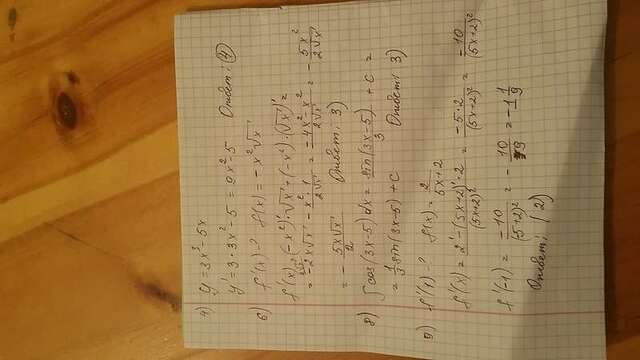 4) y = 3x³ - 5x
y' = 3·3x² - 5 = 9x² - 5 Ответ: 4
6) f'(x) = ? f(x) = -x²√x
f'(x) = (-x²)'·√x + (-x²)·(√x)' =
= -2x√x - x²·1/2√x = -4x² - x²/2√x = - 5x²/2√x
= - 5x√x/2 Ответ: 3)
8) ∫cos(3x-5)dx = sin(3x-5)/3 + C =
= 1/3 sin(3x-5) + C Ответ: 3)
9) f'(x) - ? f(x) = 2/5x+2
f'(x) = 2' - (5x+2)'·2/(5x+2)² = -5·2/(5x+2)² = -10/(5x+2)²
f'(-1) = -10/(-5+2)² = - 10/9 = -1 1/9
Ответ: 2)